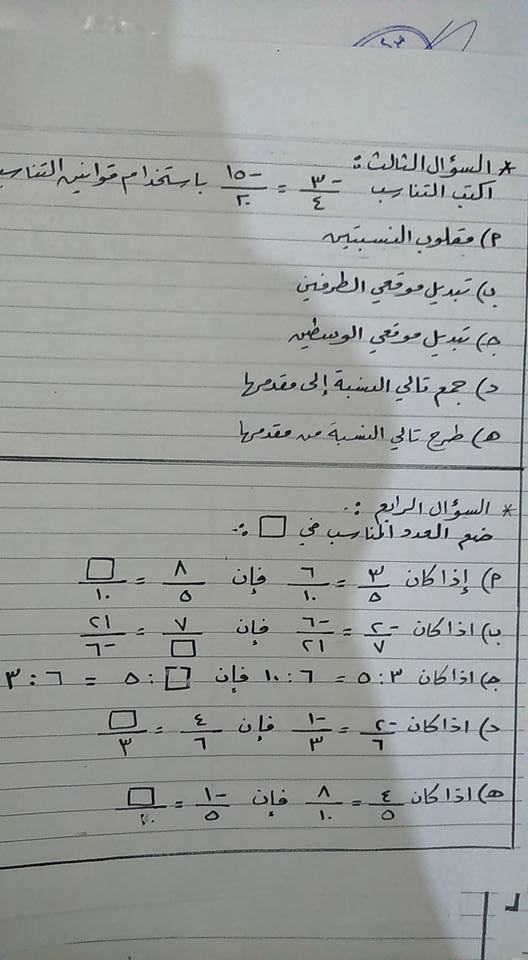 * السؤال الثالث :
اكتب التناسب -٣/٤ = -١٥/٢٠ باستخدام قوانين التناسب
أ) مقلوب النسبتين
ب) تبديل موقعي الطرفين
ج) تبديل موقعي الوسطين
د) جمع تالي النسبة إلى مقدمها
هـ) طرح تالي النسبة من مقدمها
* السؤال الرابع :.
ضع العدد المناسب في □ :.
أ) إذا كان ٣/٥ = ٦/١٠ فإن ٨/٥ = □/١٠
ب) اذا كان -٢/٧ = -٦/٢١ فإن ٧/□ = ٢١/-٦
ج) اذا كان ٣ : ٥ = ٦ : ١٠ فإن □ : ٥ = ٦ : ٣
د) اذا كان -٢/٦ = -١/٣ فإن ٤/٦ = □/٣
هـ) اذا كان ٤/٥ = ٨/١٠ فإن -١/٥ = □/٢٠